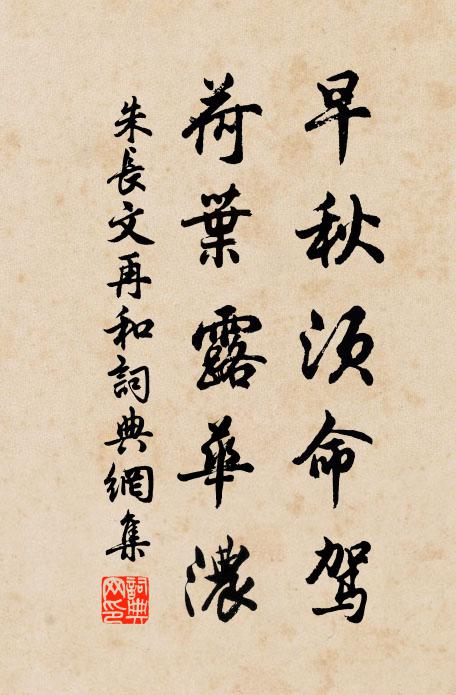 早秋須命駕
荷葉露華濃
朱長文再和詞典網集
詞典網印